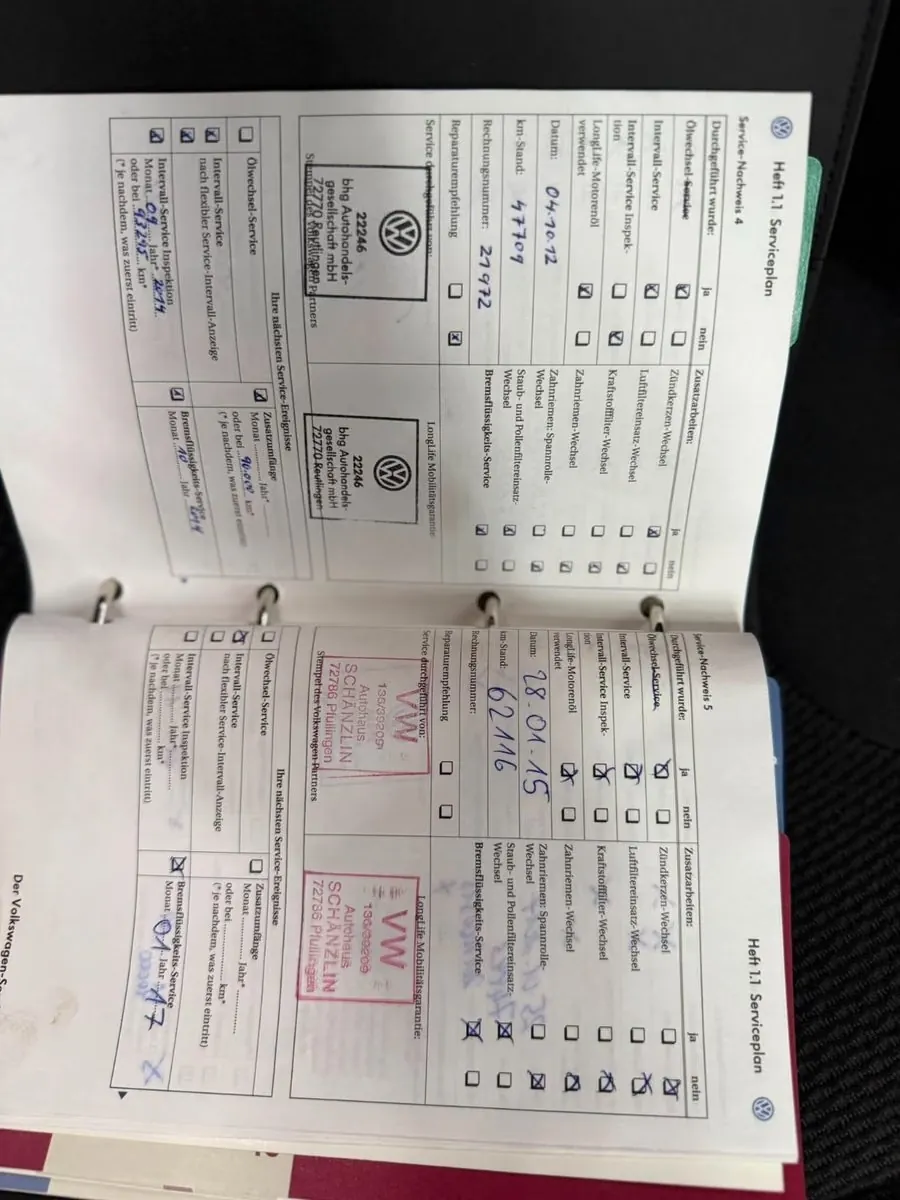 Heft 1.1 Serviceplan
Service-Nachweis 4
Durchgeführt wurde: ja nein
Ölwechsel-Service
Intervall-Service
Intervall-Service Inspek-
tion
LongLife-Motorenöl
verwendet
Datum: 04.10.12
km-Stand: 47709
Rechnungsnummer: 21972
Reparaturempfehlung
Service durchgeführt von:
22246
bhg Autohandels-
gesellschaft mbH
72770 Reutlingen
Stempel des Volkswagen Partners
Zusatzarbeiten: ja nein
Zündkerzen-Wechsel
Luftfiltereinsatz-Wechsel
Kraftstofffilter-Wechsel
Zahnriemen-Wechsel
Zahnriemen: Spannrolle-
Wechsel
Staub- und Pollenfiltereinsatz-
Wechsel
Bremsflüssigkeits-Service
LongLife Mobilitätsgarantie:
22246
bhg Autohandels-
gesellschaft mbH
72770 Reutlingen
Ihre nächsten Service-Ereignisse
Ölwechsel-Service
Intervall-Service
nach flexibler Service-Intervall-Anzeige
Intervall-Service Inspektion
Monat 09 Jahr* 2014
oder bei km*
(* je nachdem, was zuerst eintritt)
Zusatzumfänge
Monat Jahr*
oder bei 90.000 km*
(* je nachdem, was zuerst eintritt)
Bremsflüssigkeits-Service
Monat 10 Jahr 2014
Heft 1.1 Serviceplan
Service-Nachweis 5
Durchgeführt wurde: ja nein
Ölwechsel-Service
Intervall-Service
Intervall-Service Inspek-
tion
LongLife-Motorenöl
verwendet
Datum: 28.01.15
km-Stand: 62116
Rechnungsnummer:
Reparaturempfehlung
Service durchgeführt von:
VW
136/39209
Autohaus
SCHÄNZLIN
72786 Pfullingen
Stempel des Volkswagen Partners
Zusatzarbeiten: ja nein
Zündkerzen-Wechsel
Luftfiltereinsatz-Wechsel
Kraftstofffilter-Wechsel
Zahnriemen-Wechsel
Zahnriemen: Spannrolle-
Wechsel
Staub- und Pollenfiltereinsatz-
Wechsel
Bremsflüssigkeits-Service
LongLife Mobilitätsgarantie:
VW
136/39209
Autohaus
SCHÄNZLIN
72786 Pfullingen
Ihre nächsten Service-Ereignisse
Ölwechsel-Service
Intervall-Service
nach flexibler Service-Intervall-Anzeige
Intervall-Service Inspektion
Monat Jahr*
oder bei km*
(* je nachdem, was zuerst eintritt)
Zusatzumfänge
Monat Jahr*
oder bei km*
(* je nachdem, was zuerst eintritt)
Bremsflüssigkeits-Service
Monat 01 Jahr 17